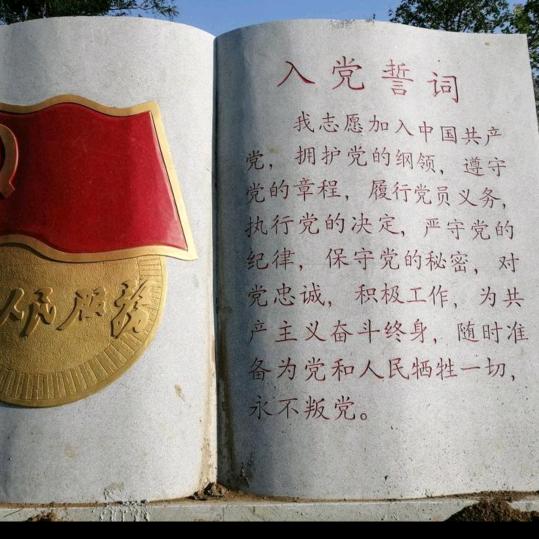 人民服务
入党誓词
我志愿加入中国共产
党，拥护党的纲领，遵守
党的章程，履行党员义务，
执行党的决定，严守党的
纪律，保守党的秘密，对
党忠诚，积极工作，为共
产主义奋斗终身，随时准
备为党和人民牺牲一切，
永不叛党。